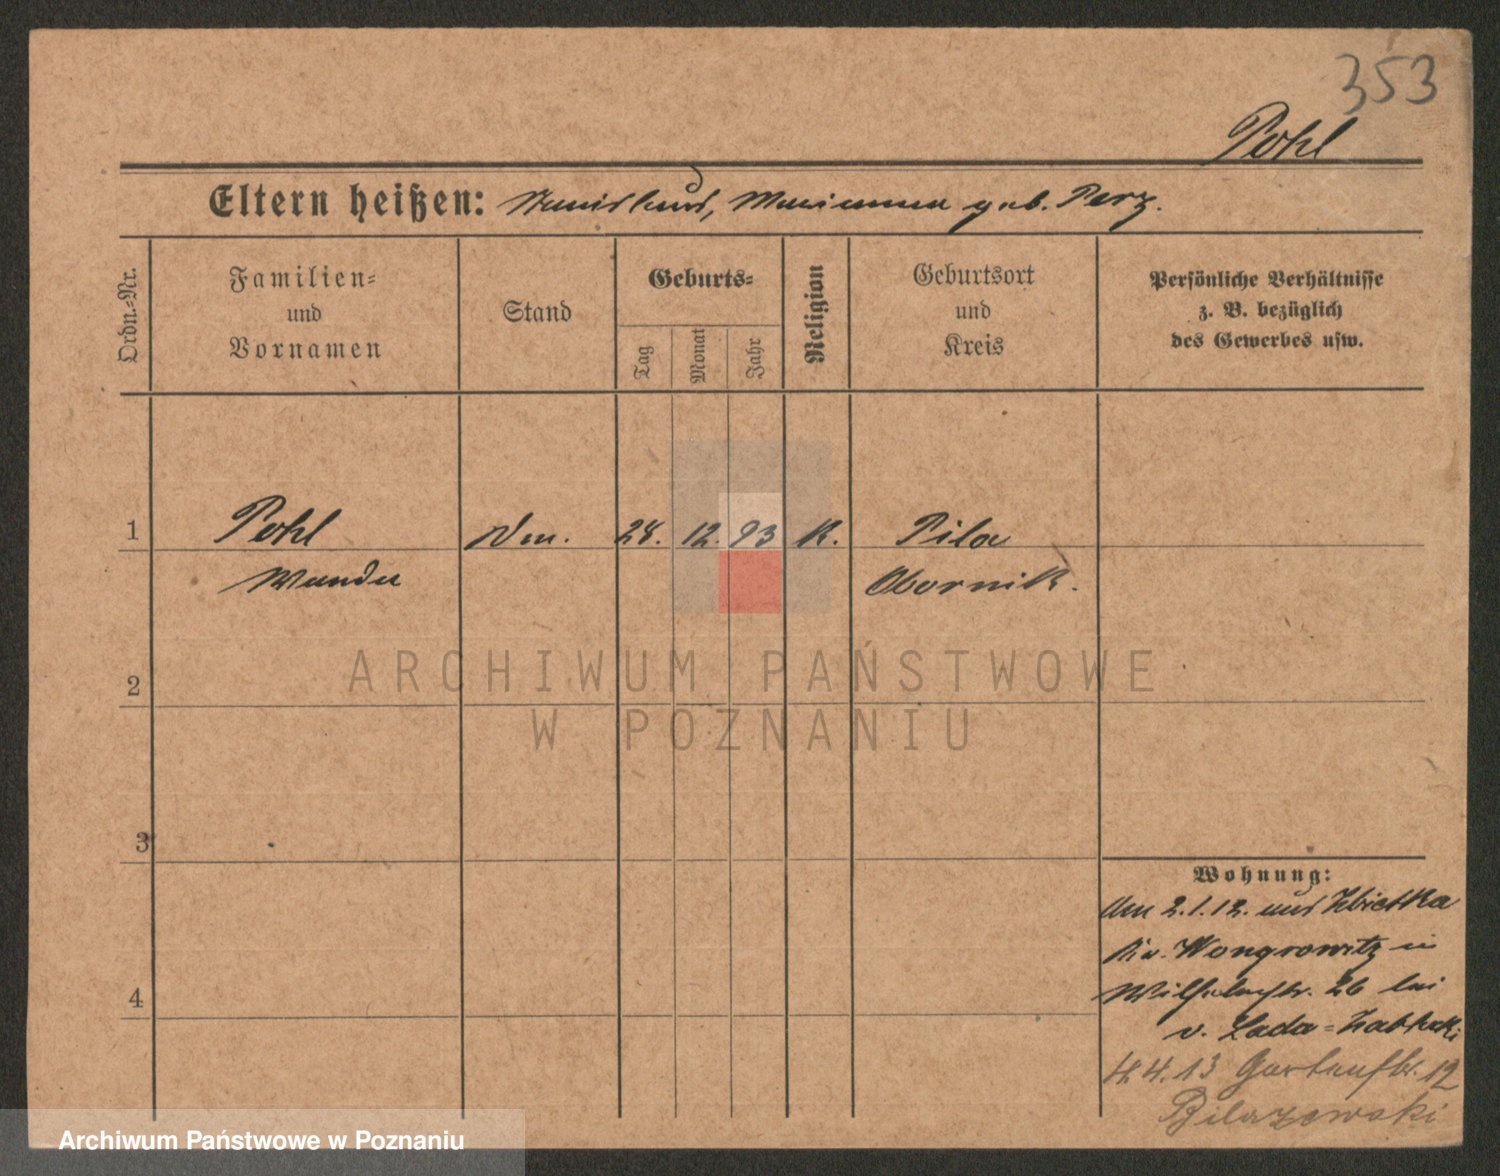 353
Pohl
Eltern heißen: Stanislaus, Marianna geb. Perz.
Ordn.-Nr.
Familien-
und
Vornamen
Stand
Geburts-
Tag
Monat
Jahr
Religion
Geburtsort
und
Kreis
Persönliche Verhältnisse
z. B. bezüglich
des Gewerbes usw.
1
Pohl
28. 12. 93
K.
Pila
Wanda
Obornik.
2
ARCHIWUM PAŃSTWOWE
W POZNANIU
3
Wohnung:
Am 2.1.12. aus Zbietka
Kr. Wongrowitz in
4
Wilhelmstr. 26 bei
v. Lada-
4.4.13 Gartenstr. 12
Bilazewski
Archiwum Państwowe w Poznaniu